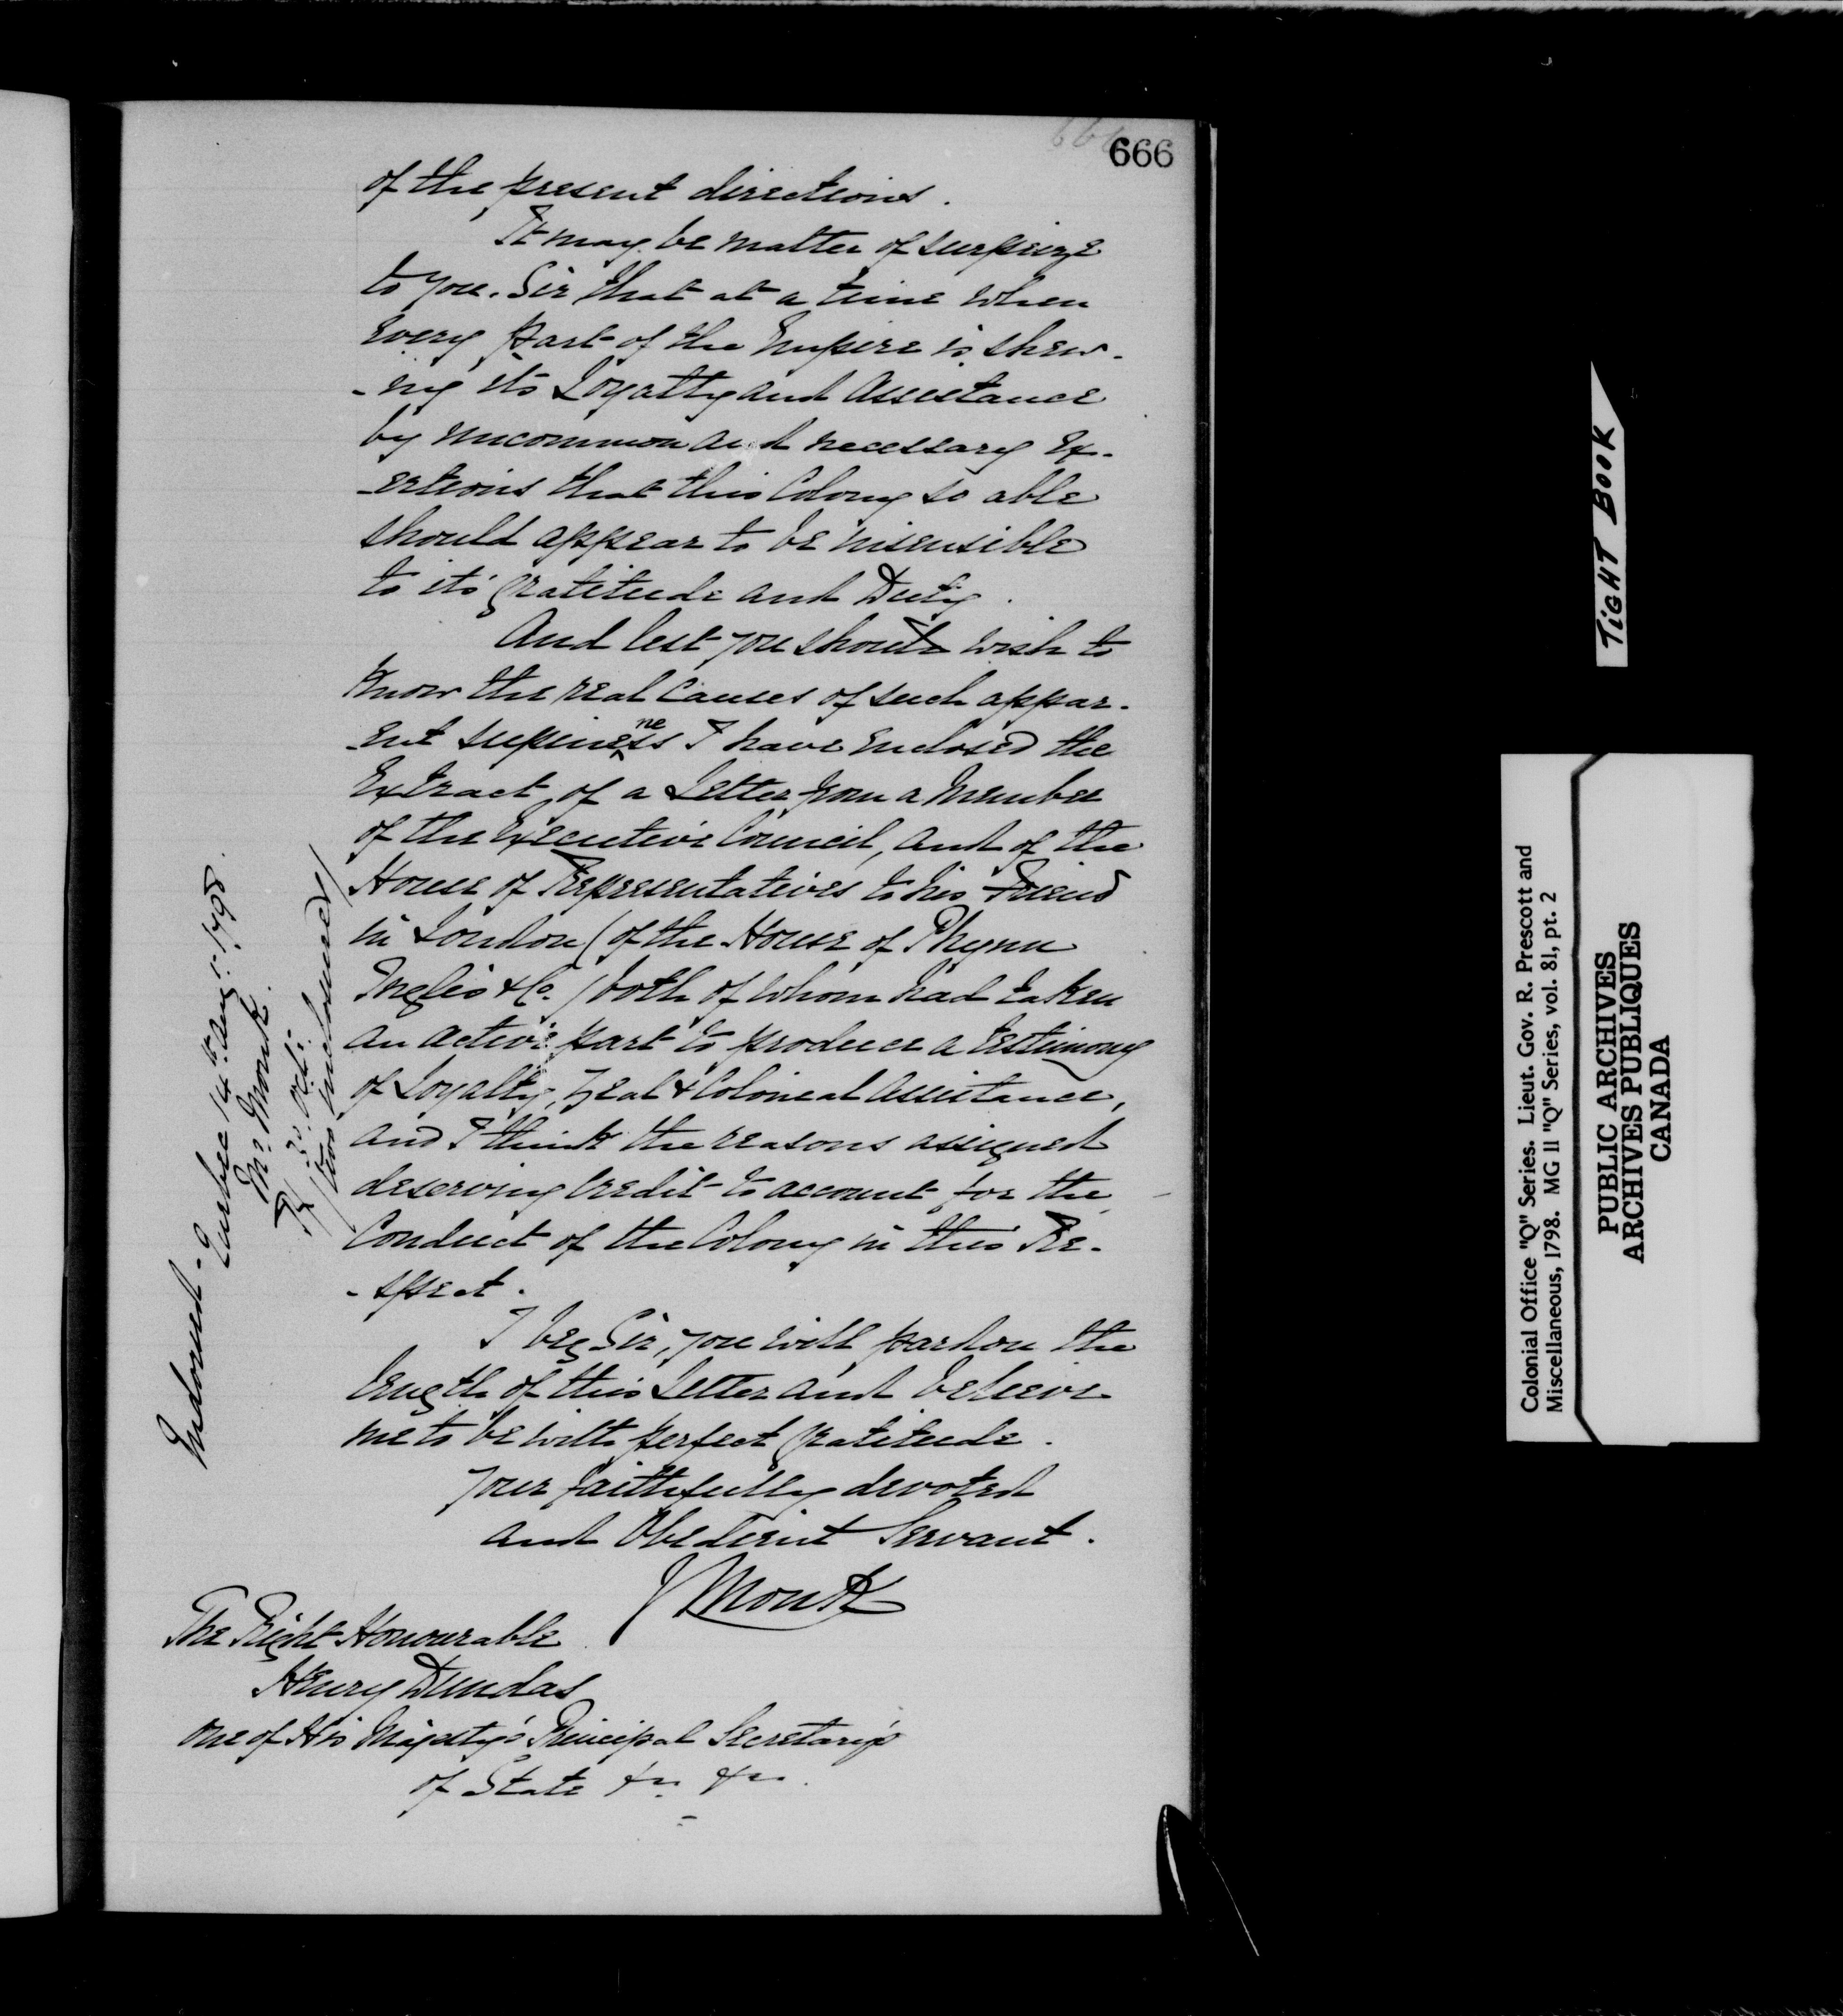 666
of the present directions.
It may be matter of surprize
to you. Sir that at a time when
every part of the Empire is shew-
-ing its Loyalty and Assistance
by uncommon and necessary Ex-
-ertions that this Colony so able
should appear to be insensible
to it's gratitude and Duty.
And lest you should wish to
know the real Causes of such appar-
-ent supineness I have enclosed the
Extract of a Letter from a Member
of the Executive Council, and of the
House of Representatives to his Friend
in London (of the House of Phynn
Inglis & Co.) both of whom had taken
an active part to produce a testimony
of Loyalty, Zeal & Colonial Assistance,
and I think the reasons assigned
deserving Credit to account for the
Conduct of the Colony in this Re-
-spect.
I beg Sir, you will pardon the
length of this Letter and believe
me to be with perfect gratitude.
Your faithfully devoted
and Obedient Servant.
J Monk
The Right Honourable
Henry Dundas
One of His Majesty's Principal Secretary's
of State &c. &c.
Endorsed - Quebec 14th. Augt. 1798.
Mr. Monk.
R. 30. Octr.
(two inclosures)
TIGHT BOOK
Colonial Office "Q" Series. Lieut. Gov. R. Prescott and
Miscellaneous, 1798. MG 11 "Q" Series, vol. 81, pt. 2
PUBLIC ARCHIVES
ARCHIVES PUBLIQUES
CANADA